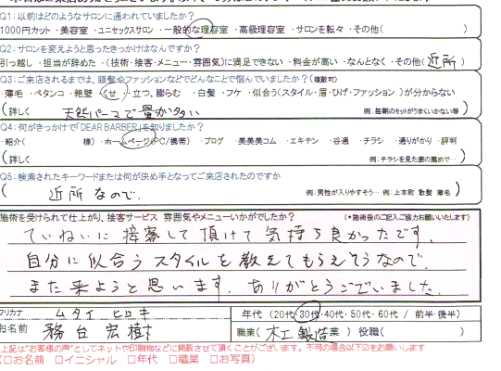 Q1：以前はどのようなサロンに通われていましたか？
1000円カット・美容室・ユニセックスサロン・一般的な理容室・高級理容室・サロンを転々・その他(　　　)
Q2：サロンを変えようと思ったきっかけはなんですか？
引っ越し・担当が辞めた・(技術・接客・メニュー・雰囲気)に満足できない・料金が高い・なんとなく・その他(近所)
Q3：ご来店されるまでは、頭髪やファッションなどでどんなことで悩んでいましたか？(複数可)
薄毛・ペタンコ・絶壁・くせ・立つ、膨らむ・白髪・フケ・似合う(スタイル・眉・ひげ・ファッション)が分からない
(詳しく　天然パーマで量が多い
Q4：何がきっかけで「DEAR BARBER」を知りましたか？
・紹介(　　　様)・ホームページ(PC/携帯)・ブログ・美美美コム・エキテン・谷通・チラシ・通りがかり・評判
(詳しく　例：チラシを見た妻の薦めで　)
Q5：検索されたキーワードまたは何が決め手となってご来店されたのですか
(近所なので.　例：男性が入りやすそう… 例：上本町 散髪 薄毛　)
施術を受けられて仕上がり、接客サービス 雰囲気やメニューいかがでしたか？　(*施術後のご記入ご協力お願いいたします)
ていねいに接客して頂けて気持ち良かったです.
自分に似合うスタイルを教えてもらえそうなので.
また来ようと思います. ありがとうございました.
フリカナ　ムタイ ヒロキ　年代(20代・30代・40代・50代・60代 / 前半・後半)
お名前　務台 宏樹　職業(木工製造業)役職(　　)
上記は"お客様の声"としてネットや印刷物などに掲載させて頂くことがございます。不可の場合以下☑をお願いします
(□お名前　□イニシャル　□年代　□職業　□お写真)